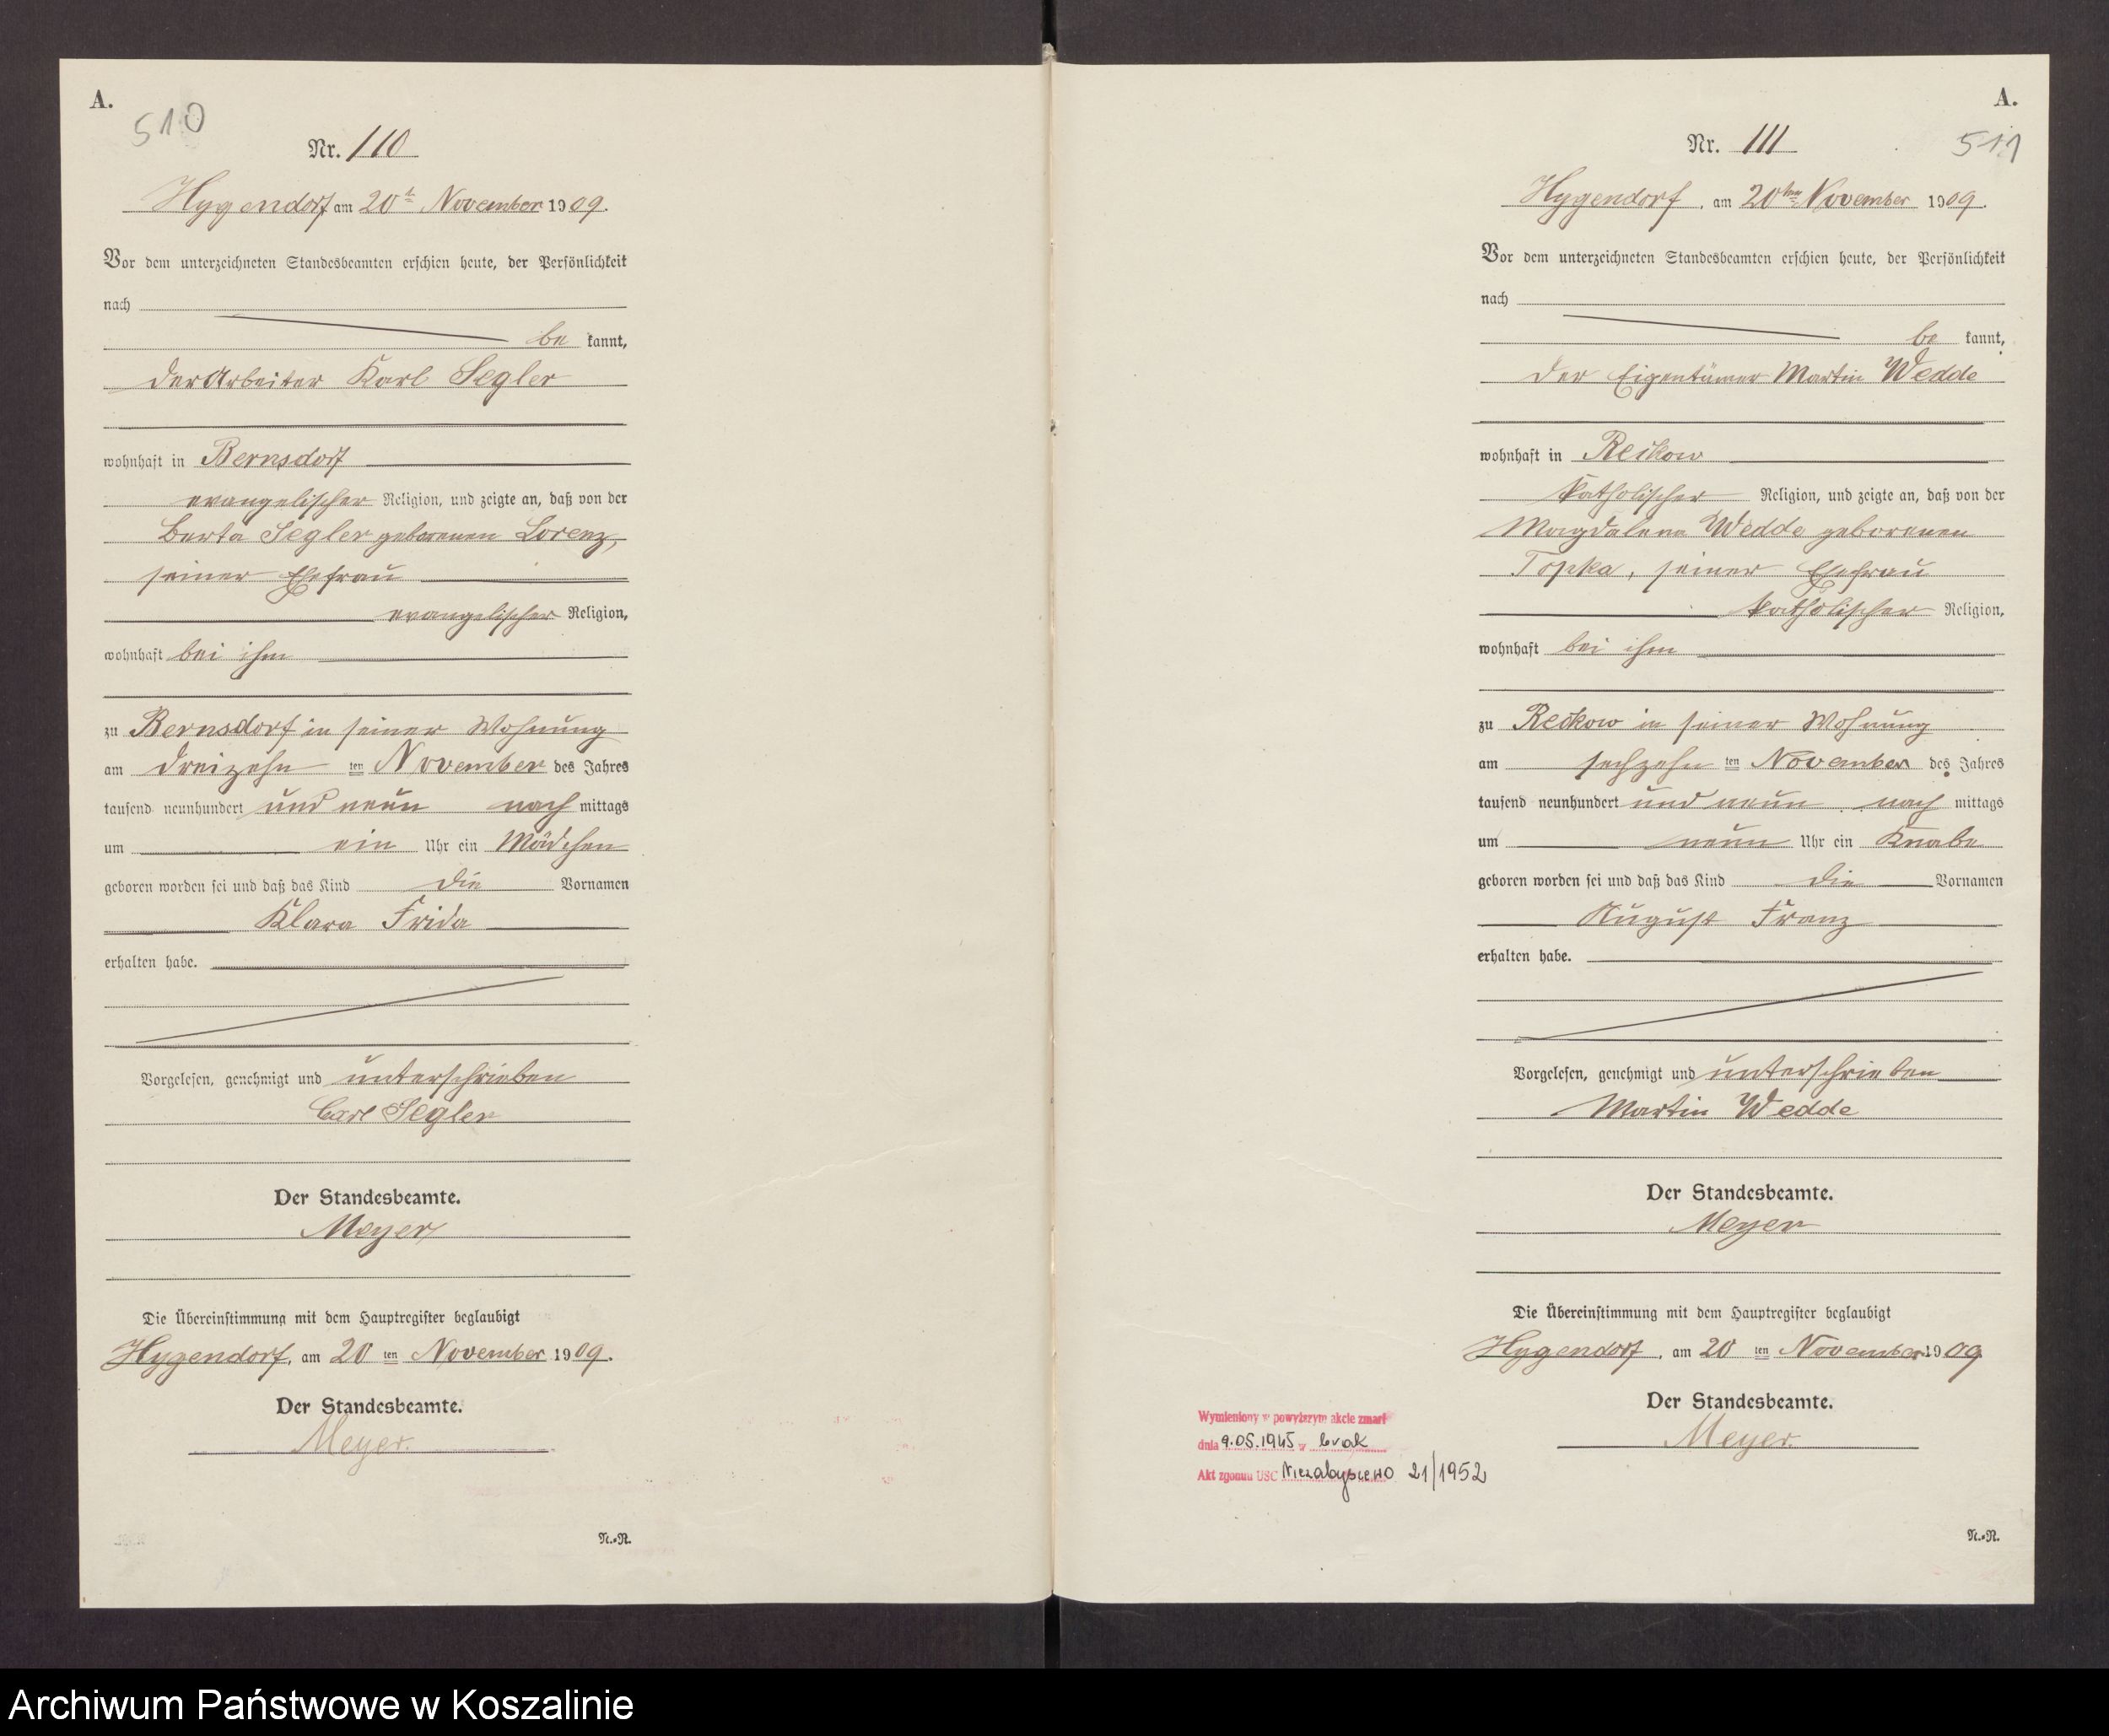 A.
510
Nr. 110
Hygendorf am 20t November 1909.
Vor dem unterzeichneten Standesbeamten erschien heute, der Persönlichkeit
nach
be kannt,
der Arbeiter Karl Segler
wohnhaft in Bernsdorf
evangelischer Religion, und zeigte an, daß von der
Berta Segler geborenen Lorenz,
seiner Ehefrau
evangelischer Religion,
wohnhaft bei ihm
zu Bernsdorf in seiner Wohnung
am dreizehn ten November des Jahres
tausend neunhundert und neun nach mittags
um ein Uhr ein Mädchen
geboren worden sei und daß das Kind die Vornamen
Klara Frida
erhalten habe.
Vorgelesen, genehmigt und unterschrieben
Carl Segler
Der Standesbeamte.
Meyer
Die Übereinstimmung mit dem Hauptregister beglaubigt
Hygendorf, am 20 ten November 1909.
Der Standesbeamte.
Meyer.
N.-R.
A.
511
Nr. 111
Hygendorf, am 20ten November 1909.
Vor dem unterzeichneten Standesbeamten erschien heute, der Persönlichkeit
nach
be kannt,
der Eigentümer Martin Wedde
wohnhaft in Reckow
katholischer Religion, und zeigte an, daß von der
Magdalena Wedde geborenen
Topka, seiner Ehefrau
katholischer Religion,
wohnhaft bei ihm
zu Reckow in seiner Wohnung
am sechzehn ten November des Jahres
tausend neunhundert und neun nach mittags
um neun Uhr ein Knabe
geboren worden sei und daß das Kind die Vornamen
August Franz
erhalten habe.
Vorgelesen, genehmigt und unterschrieben
Martin Wedde
Der Standesbeamte.
Meyer
Die Übereinstimmung mit dem Hauptregister beglaubigt
Hygendorf, am 20 ten November 1909
Der Standesbeamte.
Meyer.
Wymieniony w powyższym akcie zmarł
dnia 9.05.1945 w brak
Akt zgonu USC Niezabyszewo 21/1952
N.-R.
Archiwum Państwowe w Koszalinie